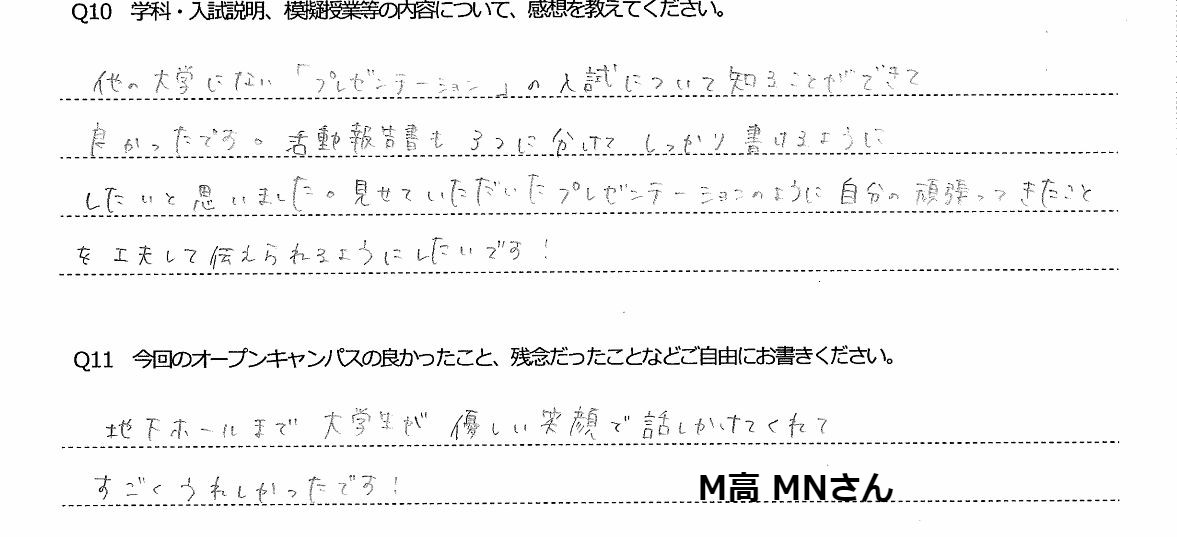 Q10 学科・入試説明、模擬授業等の内容について、感想を教えてください。
他の大学にない「プレゼンテーション」の入試について知ることができて
良かったです。活動報告書も3つに分けてしっかり書けるように
したいと思いました。見せていただいたプレゼンテーションのように自分の頑張ってきたこと
を工夫して伝えられるようにしたいです!
Q11 今回のオープンキャンパスの良かったこと、残念だったことなどご自由にお書きください。
地下ホールまで大学生が優しい笑顔で話しかけてくれて
すごくうれしかったです!
M高 MNさん